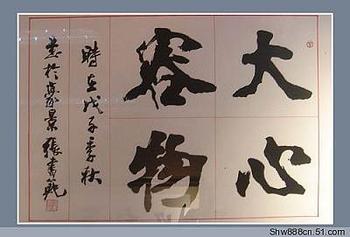 大心
容物
時在戊子季秋
張書範
Shw888cn.51.com